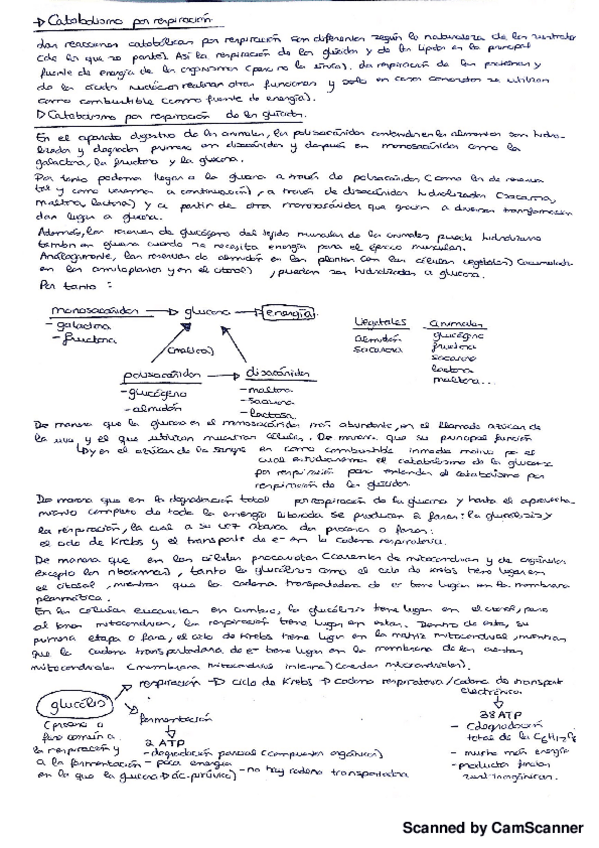 → Catabolismo por respiración
Las reacciones catabólicas por respiración son diferentes según la naturaleza de los sustratos
de los que se parte). Así la respiración de los glúcidos y de los lípidos es la principal
fuente de energía de los organismos (pero no la única). La respiración de las proteínas y
de los ácidos nucleicos realizan otras funciones y solo en casos concretos se utilizan
como combustible (como fuente de energía).
→ Catabolismo por respiración de los glúcidos.
En el aparato digestivo de los animales, los polisacáridos contenidos en los alimentos son hidro-
lizados y degradados primero en disacáridos y después en monosacáridos como la
galactosa, la fructosa y la glucosa.
Por tanto podemos llegar a la glucosa a través de polisacáridos (como los de reserva
tal y como veremos a continuación), a través de disacáridos hidrolizados (sacarosa,
maltosa, lactosa) y a partir de otros monosacáridos que gracias a diversas transformaciones
dan lugar a glucosa.
Además, las reservas de glucógeno del tejido muscular de los animales puede hidrolizarse
también en glucosa cuando se necesita energía para el ejercicio muscular.
Análogamente, las reservas de almidón en las plantas con las células vegetales) (acumulado
en los amiloplastos y en el citosol), pueden ser hidrolizadas a glucosa.
Por tanto:
monosacáridos → glucosa → energía
- galactosa
- fructosa
(maltosa)
polisacáridos → disacáridos
- glucógeno - maltosa
- almidón - sacarosa
- lactosa
Vegetales animales
almidón glucógeno
sacarosa fructosa
sacarosa
lactosa
maltosa...
De manera que la glucosa es el monosacárido más abundante, es el llamado azúcar de
la uva, y el que utilizan nuestras células. De manera que su principal función
↳ y es el azúcar de la sangre es como combustible inmediato motivo por el
cual estudiaremos el catabolismo de la glucosa
por respiración para entender el catabolismo por
respiración de los glúcidos.
De manera que en la degradación total por respiración de la glucosa y hasta el aprovecha-
miento completo de toda la energía liberada se producen 2 fases: la glucólisis y
la respiración, la cual a su vez abarca dos procesos o fases:
el ciclo de Krebs y el transporte de e- en la cadena respiratoria.
De manera que en las células procariotas (carentes de mitocondrias y de orgánulos
excepto los ribosomas), tanto la glucólisis como el ciclo de Krebs tiene lugar en
el citosol, mientras que la cadena transportadora de e- tiene lugar en la membrana
plasmática.
En las células eucariotas en cambio, la glucólisis tiene lugar en el citosol, pero
al tener mitocondrias, la respiración tiene lugar en estas. Dentro de esta, su
primera etapa o fase, el ciclo de Krebs tiene lugar en la matriz mitocondrial, mientras
que la cadena transportadora de e- tiene lugar en la membrana de las crestas
mitocondriales (membrana mitocondrial interna) (crestas mitocondriales).
glucólisis
respiración → ciclo de Krebs → cadena respiratoria / cadena de transporte
electrónico
fermentación
(proceso o
fase común a
la respiración y
a la fermentación
en la que la glucosa → ác. pirúvico)
2 ATP
- degradación parcial (compuestos orgánicos)
- poca energía
- no hay cadena transportadora
38 ATP
- (degradación
total de la C6H12O6
- mucha más energía
- productos finales
son inorgánicos.
Scanned by CamScanner